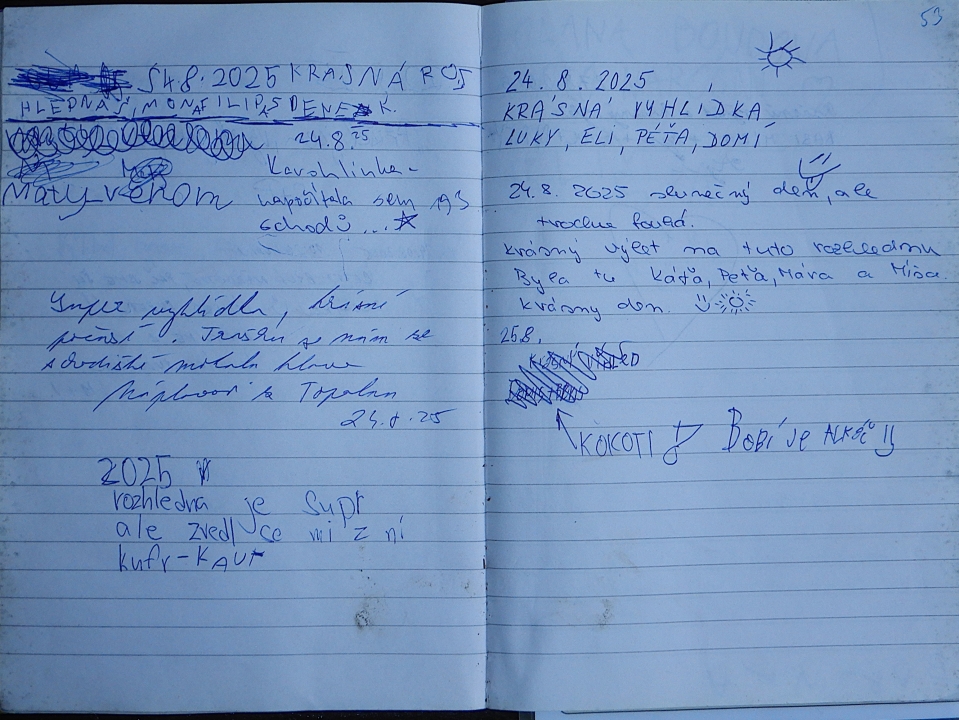 54.8.2025 KRÁSNÁ ROS
HLEDNA, MONA FILIP, SDENEK K.
24.8.25
Karohlinka -
Matyvěnom napočítala sem 193
schodů...
Super vyhlídka, krásné
počasí. Trošku se nám ze
schodiště motala hlava
z Topolan
24.8.25
2025
rozhledna je Supr
ale zvedl se mi z ní
kufr-KAUF
53
24.8.2025
KRÁSNÁ VYHLIDKA
LUKY, ELI, PÉŤA, DOMÍ
24.8.2025 slunečný den, ale
trochu fouká.
Krásný výlet na tuto rozhlednu
Byla tu Káťa, Peťa, Mára a Míša
krásný den
25.8.
KOKOTI! BOBÍ JE ALKÁČ